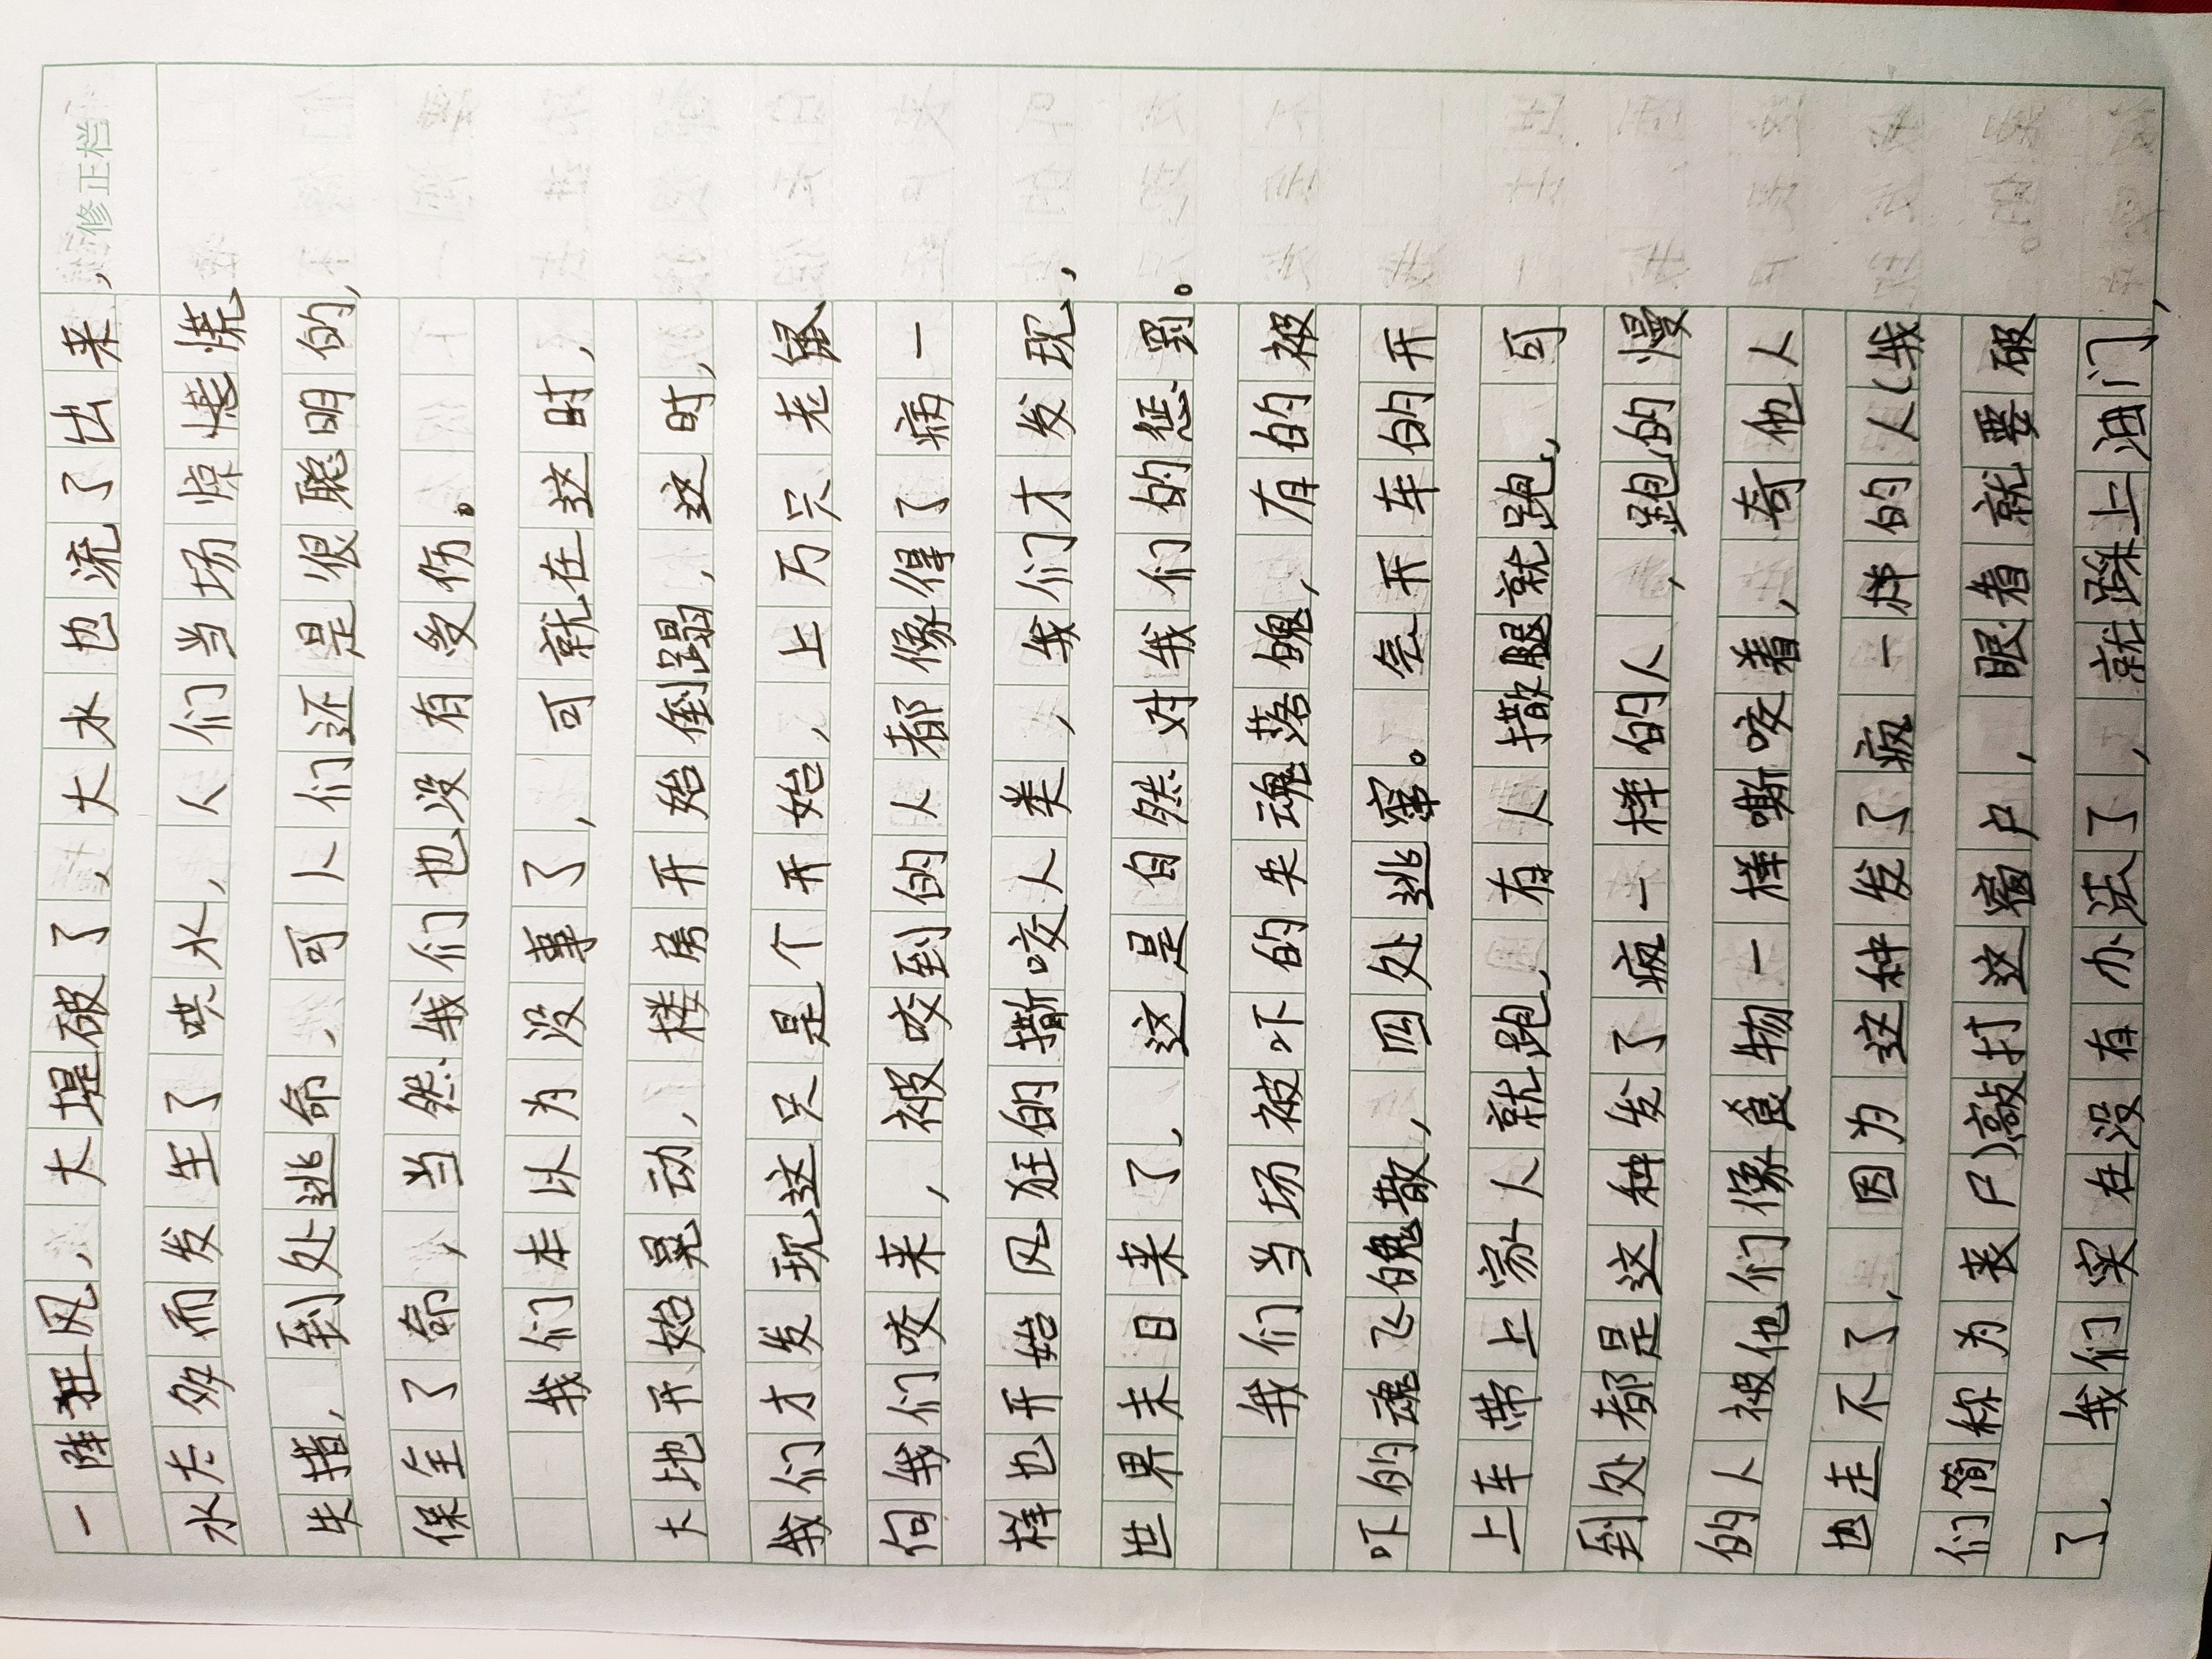 修正栏
一阵狂风，大堤破了，大水也流了出来，
水太多而发生了哄水，人们当场惊慌
失措，到处逃命，可人们还是很聪明的，
保全了命，当然我们也没有受伤。
我们本以为没事了，可就在这时，
大地开始晃动，楼房开始倒蹋，这时，
我们才发现这只是个开始，上万只老鼠
向我们咬来，被咬到的人都像得了病一
样也开始风狂的撕咬人类，我们才发现，
世界未日来了，这是自然对我们的惩罚。
我们当场被吓的失魂落魄，有的被
吓的魂飞魄散，四处逃窜。会开车的开
上车带上家人就跑，有人撒腿就跑，可
到处都是这种发了疯一样的人，跑的慢
的人被他们像食物一样嘶咬着，奇他人
也走不了，因为这种发了疯一样的人(我
们简称为丧尸)敲打这窗户，眼看就要破
了，我们实在没有办法了，就踩上油门，